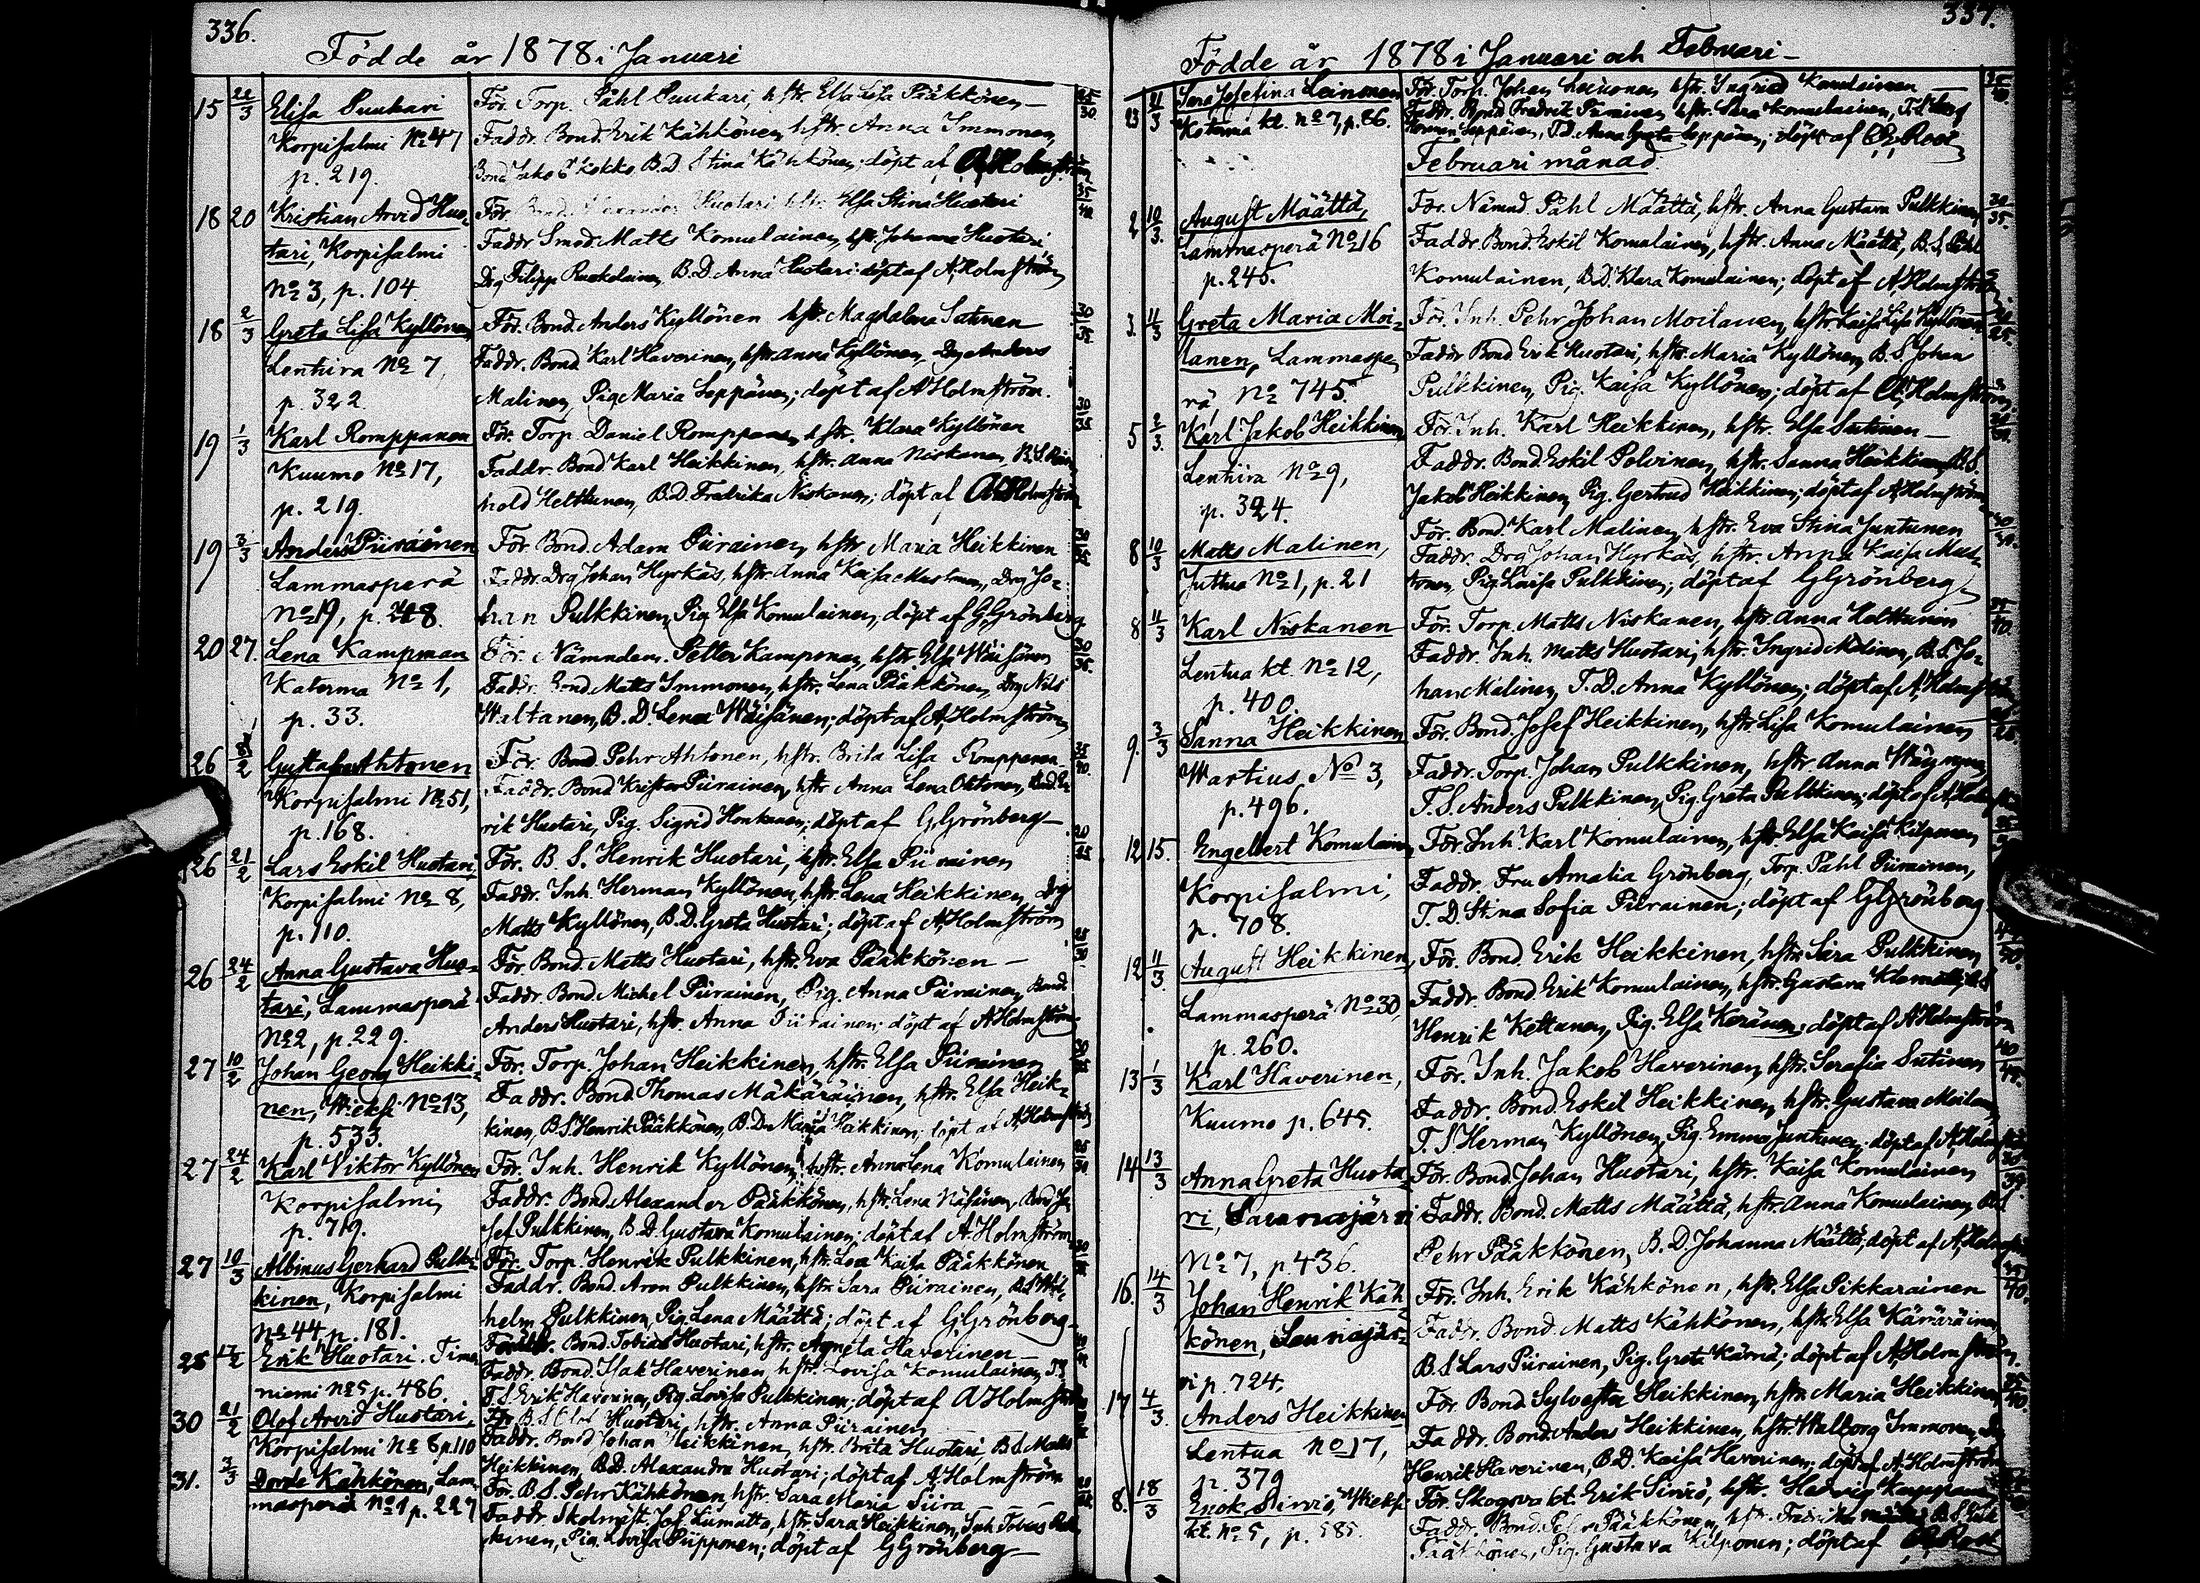 336.
Födde år 1878 i Januari
15 22/3 Elisa Puukari För. Torp. Påhl Puukari, hstr. Elsa Lisa Pääkkönen 25/30
Korpisalmi No 47 Faddr. Bond. Erik Kähkönen, hstr. Anna Immonen,
p. 219. Bond Jakob Kokko, B.D. Stina Kähkönen; döpt af A. Holmström
18 20 Kristian Arvid Huo- För. Bond. Alexander Huotari hstr. Elsa Stina Huotari 35/40
tari, Korpisalmi Faddr Smed Matts Komulainen, hstr Johanna Huotari
No 3, p. 104. Drg Filipp Ruokolainen, B.D. Anna Huotari; döpt af A. Holmström
18 2/3 Greta Lisa Kyllönen För. Bond. Anders Kyllönen hstr. Magdalena Sutinen 30/35
Lentiira No 7, Faddr. Bond Karl Haverinen, hstr. Anna Kyllönen, Drg Anders
p. 322 Malinen, Pig. Maria Seppänen; döpt af A Holmström.
19 1/3 Karl Romppanen För. Torp. Daniel Romppanen, hstr. Klara Kyllönen 30/35
Kuumo No 17, Faddr. Bond Karl Heikkinen, hstr. Anna Niskanen, B.S. Rein
p. 219. hold Helttunen, B.D. Fredrika Niskanen; döpt af A. Holmström
19 3/3 Anders Piirainen För. Bond. Adam Piirainen, hstr Maria Heikkinen
Lammasperä Faddr. Drg Johan Hyrkäs, hstr. Anna Kaisa Mustonen, Drg Jo-
No 19, p. 248. han Pulkkinen, Pig Elsa Komulainen, döpt af G Grönberg
20 27. Lena Kampman För. Nämndem. Petter Kampman, hstr. Elsa Wäisänen 30/35.
Katerma No 1, Faddr. Bond Matts Immonen, hstr. Lena Pääkkönen, Drg Nils
p. 33. Waltanen, B.D. Lena Wäisänen; döpt af A. Holmström
26 Gustaf Ahtonen För Bond. Pehr Ahtonen, hstr. Brita Lisa Romppanen 35/40.
Korpisalmi No 51, Faddr. Bond Krister Piirainen, hstr Anna Lena Oktonen, Bond E-
p. 168. rik Huotari, Pig. Sigrid Honkanen; döpt af G Grönberg
26 21/2 Lars Eskil Huotari För. B. S. Henrik Huotari, hstr. Elsa Piirainen 20/25
Korpisalmi No 8, Faddr. Inh. Herman Kyllönen, hstr. Lena Heikkinen, Drg
p. 110. Matts Kyllönen, B.D. Greta Huotari; döpt af A. Holmström
26 24/2 Anna Gustava Huo- För. Bond. Matts Huotari, hstr. Eva Pääkkönen 25/30
tari, Lammasperä Faddr. Bond Michel Piirainen, Pig. Anna Piirainen, Bond
No 2, p. 229. Anders Huotari, hstr. Anna Piirainen; döpt af A Holmström
27 10/2 Johan Georg Heikki- För. Torp. Johan Heikkinen, hstr. Elsa Piirainen
nen, Wieksi No 13, Faddr. Bond Thomas Mäkäräinen, hstr. Elsa Heik-
p. 533. kinen, B.S Henrik Pääkkönen, B.D. Maria Heikkinen; döpt af A. Holmström
27 24/2 Karl Viktor Kyllönen För. Inh. Henrik Kyllönen, hstr. Anna Lena Komulainen
Korpisalmi, Faddr. Bond. Alexander Pääkkönen, hstr. Lena Näsänen, Bond Jo
p. 719. sef Pulkkinen, B.D. Gustava Komulainen; döpt af A. Holmström
27 10/3 Albinus Gerhard Pulk- För. Torp. Henrik Pulkkinen, hstr. Lea Kaisa Pääkkönen
kinen, Korpisalmi Faddr. Bond. Aron Pulkkinen, hstr Sara Piirainen, B.S Wil-
No 44, p. 181. helm Pulkkinen, Pig Lena Määttä; döpt af G Grönberg
28 17/2 Erik Huotari. Timo- Bond Tobias Huotari, hstr. Agneta Haverinen
niemi No 5 p. 486. Faddr. Bond. Isak Haverinen, hstr. Lovisa Komulainen,
T.S. Erik Haverinen, Pig. Lovisa Pulkkinen; döpt af A Holmström
30 21/2 Olof Arvid Huotari, För. B.S Olof Huotari, hstr. Anna Piirainen
Korpisalmi No 8 p. 110 Faddr. Bond Johan Heikkinen, hstr. Brita Huotari, B.S. Matts
Heikkinen, B.D. Alexandra Huotari; döpt af A Holmström
31. 3/3 Kähkönen, Lam- För. B.S. Pehr Kähkönen, hstr. Sara Maria Siira
masperä No 1 p. 227 Faddr Skolmäst. Jos. Liimatta, hstr. Sara Heikkinen, Inh Tobias
kinen, Pig. Lovisa Piipponen; döpt af G Grönberg
337.
Födde år 1878 i Januari och Februari
23 31/3 Lena Josefina Leinonen För. Torp. Johan Leinonen hstr. Ingrid Komulainen
Katerma kt. No 7, p. 86. Faddr. Bond Fredrik Piirainen hstr. Sara Komulainen, T.S.
Herman Seppänen, T.D. Anna Greta Seppänen; döpt af
Februari månad.
2 10/3. August Määttä, För. Nämnd. Påhl Määttä, hstr. Anna Gustava Pulkkinen 30/35.
Lammasperä No 16 Faddr. Bond. Eskil Komulainen, hstr. Anna Määttä, B.S. Påhl
p. 245. Komulainen, B.D. Klara Komulainen; döpt af A Holmström
3. 11/3 Greta Maria Moi- För. Inh. Pehr Johan Moilanen, hstr Kaisa Lisa Kyllönen
lanen, Lammaspe- Faddr Bond Erik Huotari, hstr. Maria Kyllönen, B.S. Johan
rä, No 745. Pulkkinen, Pig. Kaisa Kyllönen; döpt af A. Holmström
5 2/3. Karl Jakob Heikkinen För. Inh. Karl Heikkinen, hstr. Elsa Sutinen
Lentiira No 9, Faddr. Bond. Eskil Polvinen, hstr. Sanna Heikkinen, B.S.
p. 324. Jakob Heikkinen, Pig. Gertrud Heikkinen; döpt af A. Holmström
8 10/3 Matts Malinen, För. Bond. Karl Malinen, hstr. Eva Stina Juntunen
Juttua No 1, p. 21 Faddr. Drg Johan Hyrkäs, hstr. Anna Kaisa Mus-
tonen, Pig. Kaisa Pulkkinen; döpt af G Grönberg
8 11/3 Karl Niskanen För. Torp. Matts Niskanen, hstr Anna Helttunen
Lentua kt. No 12, Faddr. Inh. Matts Huotari, hstr. Ingrid Malinen, B.S. Jo-
p. 400. han Malinen, T.D. Anna Kyllönen; döpt af A. Holmström
9. 3/3 Sanna Heikkinen För. Bond. Josef Heikkinen, hstr. Lisa Komulainen
Wartius No 3, Faddr. Torp. Johan Pulkkinen, hstr Anna Wäyrynen,
p. 496. T.S. Anders Pulkkinen, Pig. Greta Pulkkinen; döpt af A. Holmström
12 15. Engelbert Komulainen, För Inh. Karl Komulainen, hstr. Elsa Kaisa Kilponen
Korpisalmi, Faddr. Fru Amalia Grönberg, Torp. Påhl Piirainen,
p. 708. T.D. Stina Sofia Piirainen; döpt af G Grönberg
12 11/3 August Heikkinen, För. Bond. Erik Heikkinen, hstr. Sara Pulkkinen
Lammasperä No 30, Faddr. Bond. Erik Komulainen, hstr. Gustava Klemetti, B.S
p. 260. Henrik Kettunen, Pig. Elsa Keränen; döpt af A Holmström
13 1/3 Karl Haverinen, För. Inh. Jakob Haverinen, hstr. Serafia Sutinen
Kuumo p. 645. Faddr. Bond. Eskil Heikkinen, hstr. Gustava Moilanen,
T.S. Herman Kyllönen, Pig. Emma Juntunen; döpt af A. Holmström
14 13/3 Anna Greta Huota- För. Bond. Johan Huotari, hstr. Kaisa Komulainen
ri, Saunajärvi Faddr. Bond. Matts Määttä, hstr. Anna Komulainen,
No 7, p 436. Pehr Pääkkönen, B.D. Johanna Määttä; döpt af A. Holmström
16. 14/3 Johan Henrik Käh- För. Inh. Erik Kähkönen, hstr. Elsa Pikkarainen
könen, Saunajär- Faddr. Bond. Matts Kähkönen, hstr. Elsa Kämäräinen
vi p. 724, B.S Lars Piirainen, Pig. Greta Kämä; döpt af A. Holmström.
17 4/3. Anders Heikkinen För Bond Sylvester Heikkinen, hstr. Maria Heikkinen
Lentua No 17, Faddr. Bond. Anders Heikkinen, hstr. Walborg Immonen,
p. 379 Henrik Haverinen, B.D. Kaisa Haverinen; döpt af A. Holmström
8. 18/3 Enok Siniö, Wieksi För. Skogsvakt. Erik Siniö, hstr. Hedvig Kauppinen
kt. No 5, p. 585. Faddr. Bond. Pääkkönen, hstr. B.S.
Pääkkönen, Pig. Gustava Kilponen; döpt af